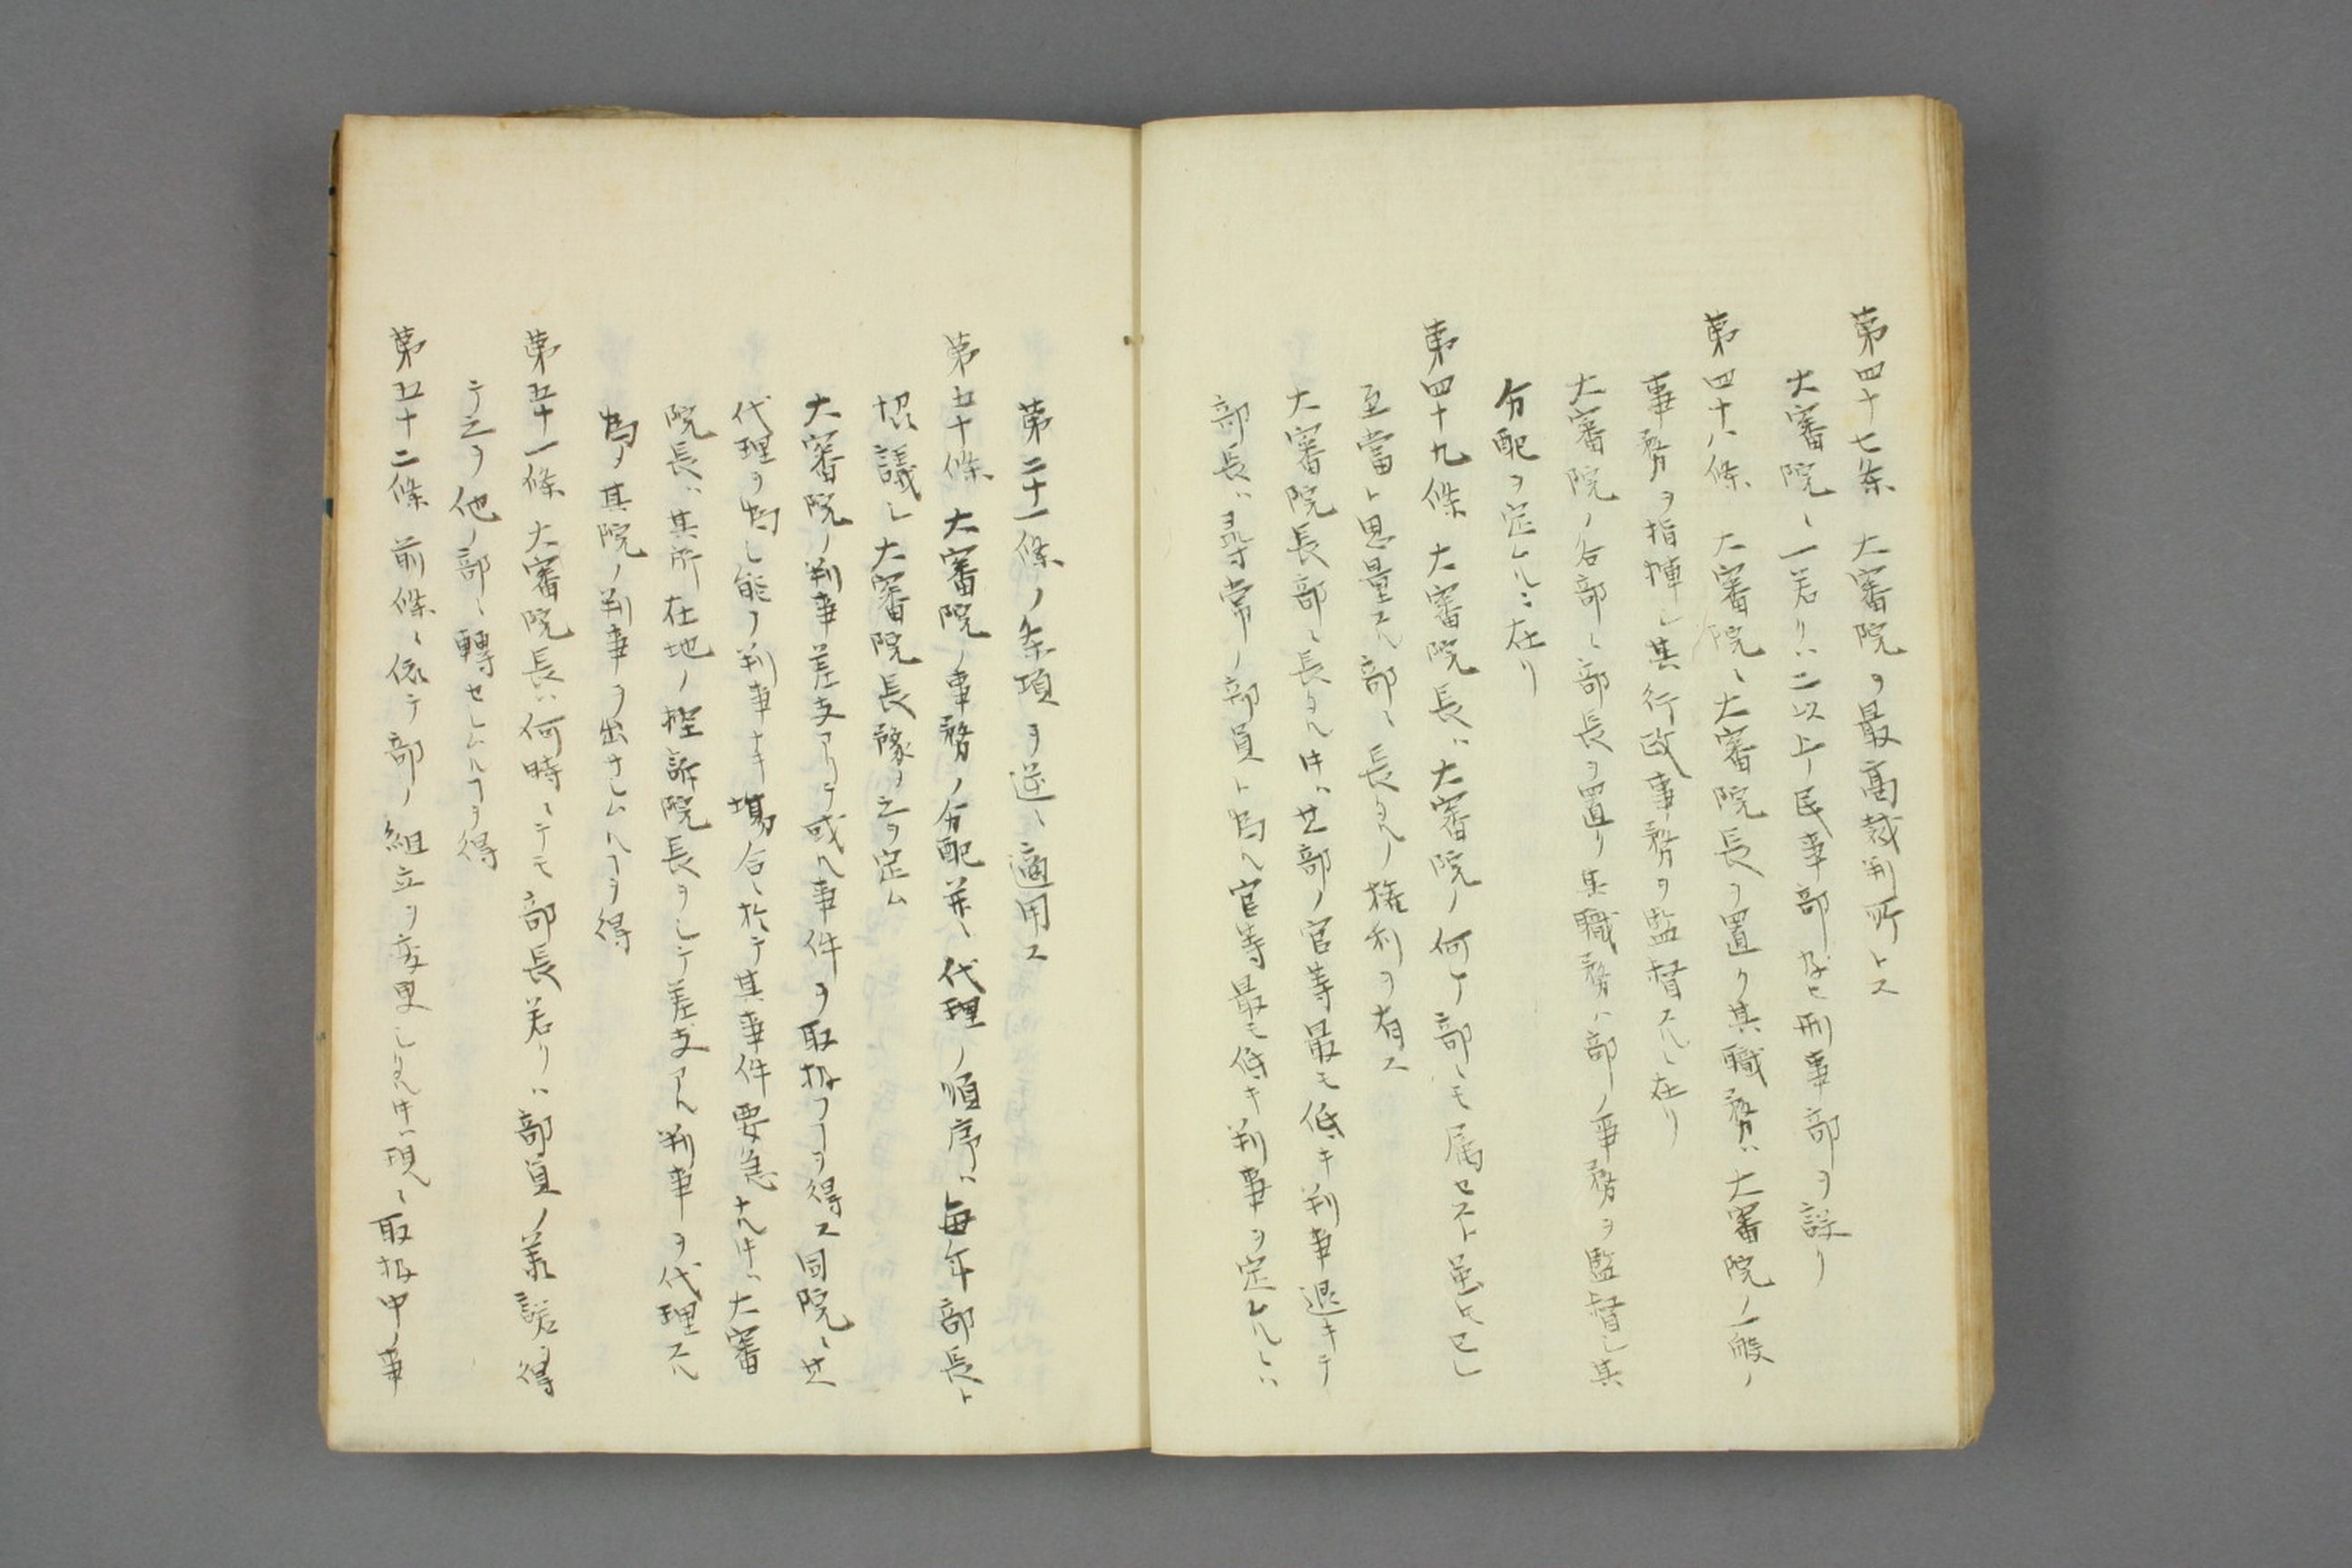 第四十七条 大審院ヲ最高裁判所トス
大審院ニ一若クハ二以上ノ民事部及ヒ刑事部ヲ設ク
第四十八條 大審院ニ大審院長ヲ置ク其職務ハ大審院ノ一般ノ
事務ヲ指揮シ其行政事務ヲ監督スルニ在リ
大審院ノ各部ニ部長ヲ置ク其職務ハ部ノ事務ヲ監督シ其
分配ヲ定ムルニ在リ
第四十九條 大審院長ハ大審院ノ何レノ部ニモ属セスト虽モ己レ
至當ト思量スル部ニ長タルノ権利ヲ有ス
大審院長部ニ長タル时ハ其部ノ官等最モ低キ判事退キテ
部長ハ尋常ノ部員ト為ル官等最モ低キ判事ヲ定ムルニハ
第二十一條ノ条項ヲ逆ニ適用ス
第五十條 大審院ノ事務ノ分配并ニ代理ノ順序ハ毎年部長ト
協議シ大審院長豫メ之ヲ定ム
大審院ノ判事差支アリテ或ル事件ヲ取扱フヿヲ得ス同院ニ其
代理ヲ為シ能フ判事ナキ場合ニ於テ其事件要急ナル时ハ大審
院長ハ其所在地ノ控訴院長ヲシテ差支アル判事ヲ代理スル
為メ其院ノ判事ヲ出サシムルヿヲ得
第五十一條 大審院長ハ何時ニテモ部長若クハ部員ノ羕諾ヲ得
テ之ヲ他ノ部ニ轉セシムルヿヲ得
第五十二條 前條ニ依テ部ノ組立ヲ変更シタル时ハ現ニ取扱中ノ事